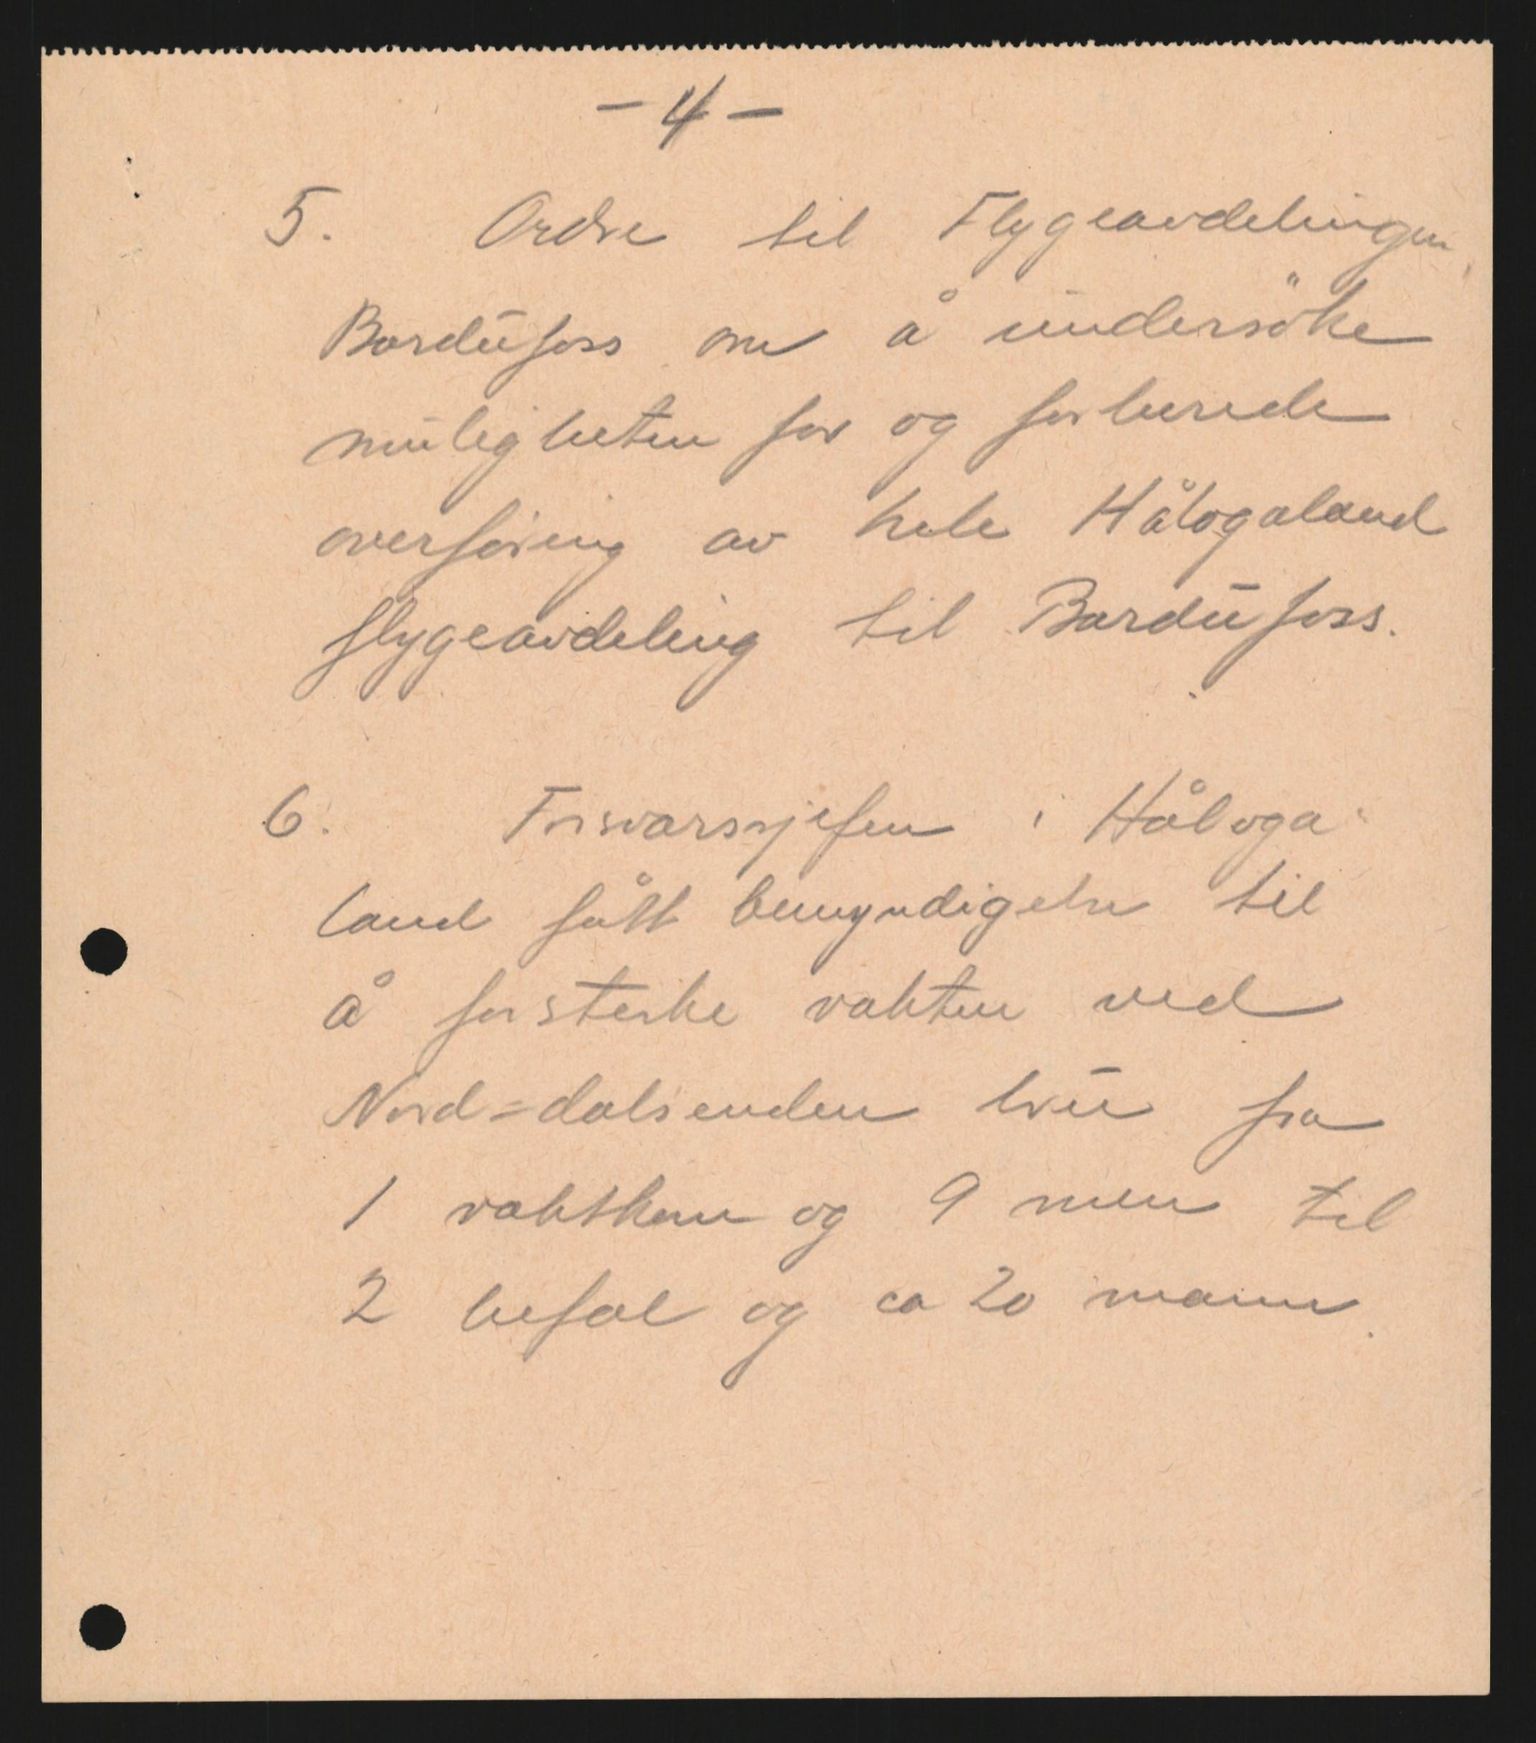 - 4 -
5. Ordre til Flygeavdelingen,
Bardufoss om å undersöke
muligheten for og forberede
overföring av hele Hålogaland
flygeavdeling til Bardufoss.
6. Forsvarssjefen i Håloga-
land fått bemyndigelse til
å forsterke vakten ved
Nord=dalsenden bru fra
1 vaktkom og 9 menn til
2 befal og ca 20 mann.